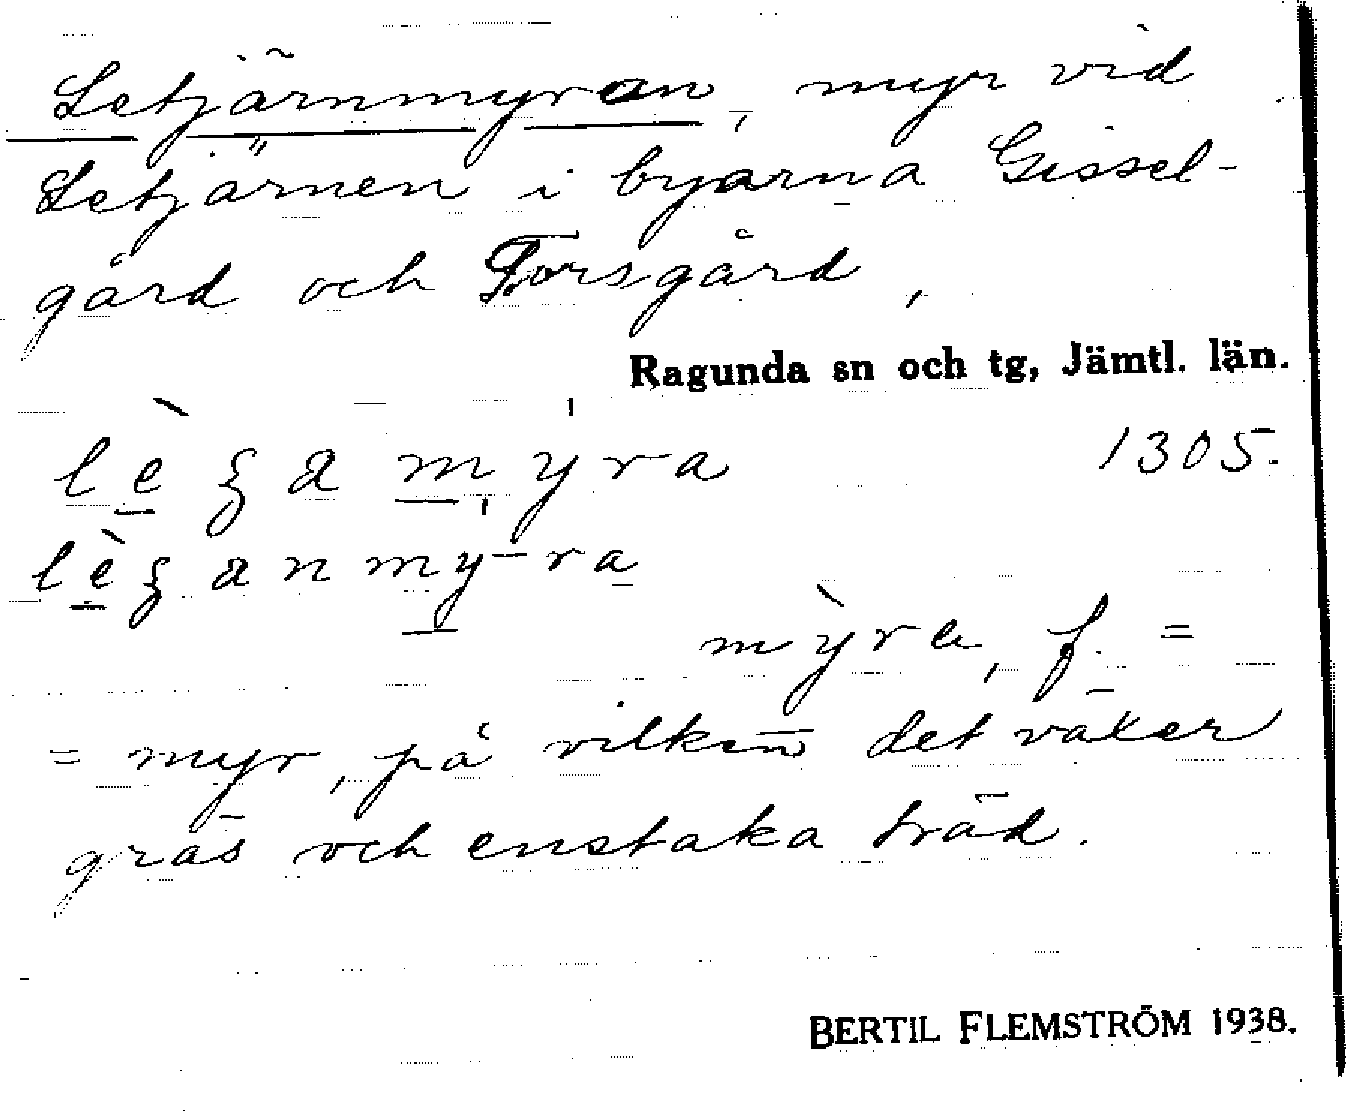 Letjärnmyran, myr vid
Letjärnen i byarna Gissel-
gård och Forsgård,
Ragunda sn och tg, Jämtl. län.
1305.
mỳra, f. =
= myr, på vilken det växer
gräs och enstaka träd.
BERTIL FLEMSTRÖM 1938.